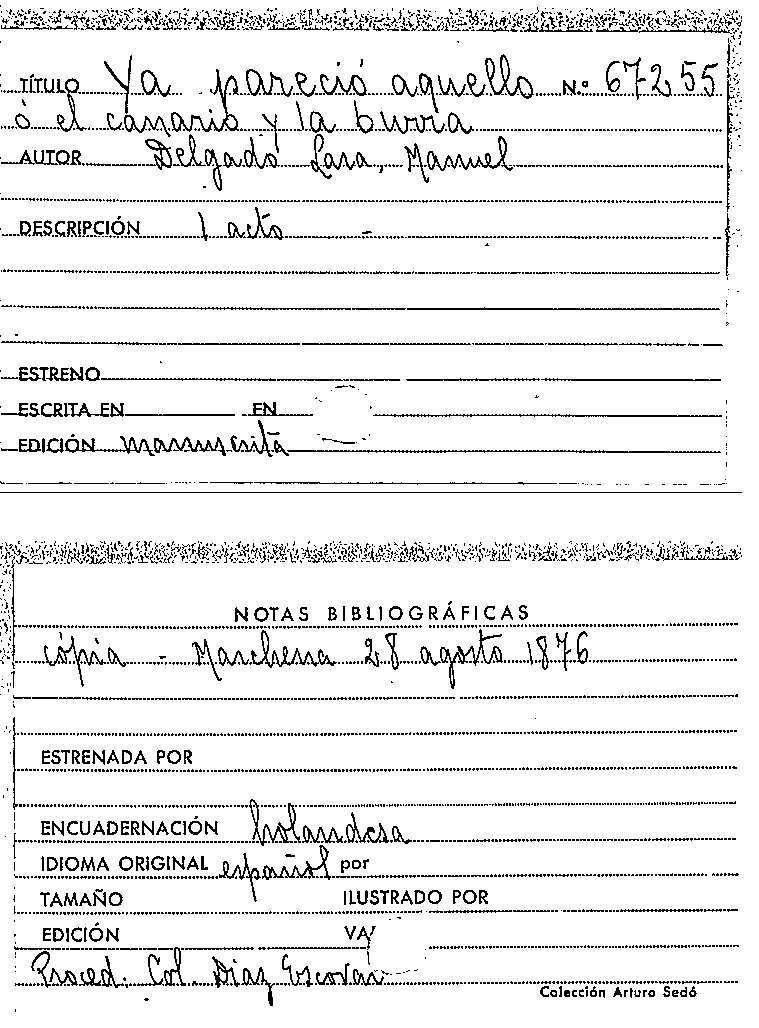 TÍTULO Ya pareció aquello N.º 67255
ó el canario y la burra
AUTOR Delgado Lara, Manuel
DESCRIPCIÓN 1 acto -
ESTRENO
ESCRITA EN EN
EDICIÓN manuscrita
NOTAS BIBLIOGRÁFICAS
cópia - Marchena 28 agosto 1876
ESTRENADA POR
ENCUADERNACIÓN holandesa
IDIOMA ORIGINAL español por
TAMAÑO ILUSTRADO POR
EDICIÓN
Proced. Col. Diaz Escovar
Colección Arturo Sedó